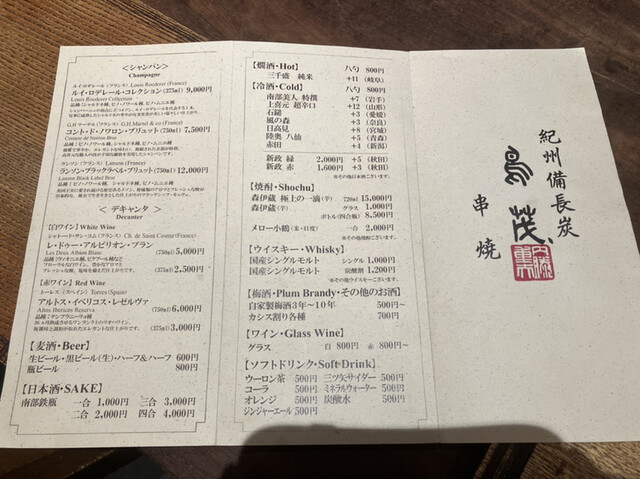 ＜シャンパン＞
Champagne
ルイ・ロデレール(フランス) Louis Roederer (France)
ルイ・ロデレール・コレクション(375ml) 9,000円
Louis Roederer Collection
品種:ピノ・ノワール種、シャルドネ種、ピノ・ムニエ種
コント・ド・ノワロン・ブリュット(750ml) 7,500円
Comte de Noiron Brut
ランソン(フランス) Lanson (France)
ランソン・ブラックラベル・ブリュット(750ml) 12,000円
Lanson Black Label Brut
＜デキャンタ＞
Decanter
【白ワイン】White Wine
レ・ドゥー・アルビリオン・ブラン
(750ml) 5,000円
Les Deux Albion Blanc
(375ml) 2,500円
【赤ワイン】Red Wine
トーレス(スペイン) Torres (Spain)
アルトス・イベリコス・レゼルヴァ
Altos Ibericos Reserva
(750ml) 6,000円
(375ml) 3,000円
【麦酒・Beer】
生ビール・黒ビール(生)・ハーフ&ハーフ 600円
瓶ビール 800円
【日本酒・SAKE】
南部鉄瓶 一合 1,000円 三合 3,000円
二合 2,000円 四合 4,000円
【燗酒・Hot】 八勺 800円
三千盛 純米 +11 (岐阜)
【冷酒・Cold】 八勺 800円
南部美人 特撰 +7 (岩手)
上喜元 超辛口 +12 (山形)
石鎚 +3 (愛媛)
風の森 +3 (奈良)
日高見 +8 (宮城)
陸奥 八仙 +5 (青森)
+4 (新潟)
新政 緑 2,000円 +5 (秋田)
新政 赤 1,600円 +3 (秋田)
※その他日本酒ございます。
【焼酎・Shochu】
森伊蔵 極上の一滴(芋) 720ml 15,000円
森伊蔵(芋) グラス 1,000円
ボトル(四合瓶) 8,500円
メロー小鶴(米・11度) 一合 2,000円
※その他焼酎ございます。
【ウイスキー・Whisky】
国産シングルモルト シングル 1,000円
国産シングルモルト 炭酸割 1,200円
【梅酒・Plum Brandy・その他のお酒】
自家製梅酒3年〜10年 500円〜
カシス割り各種 700円
【ワイン・Glass Wine】
グラス 白 800円 赤 800円〜
【ソフトドリンク・Soft Drink】
ウーロン茶 500円 三ツ矢サイダー 500円
コーラ 500円 ミネラルウォーター 500円
オレンジ 500円 炭酸水 500円
ジンジャーエール 500円
紀州備長炭
鳥茂
串焼